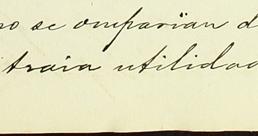 no se omparian d
traia utilidad